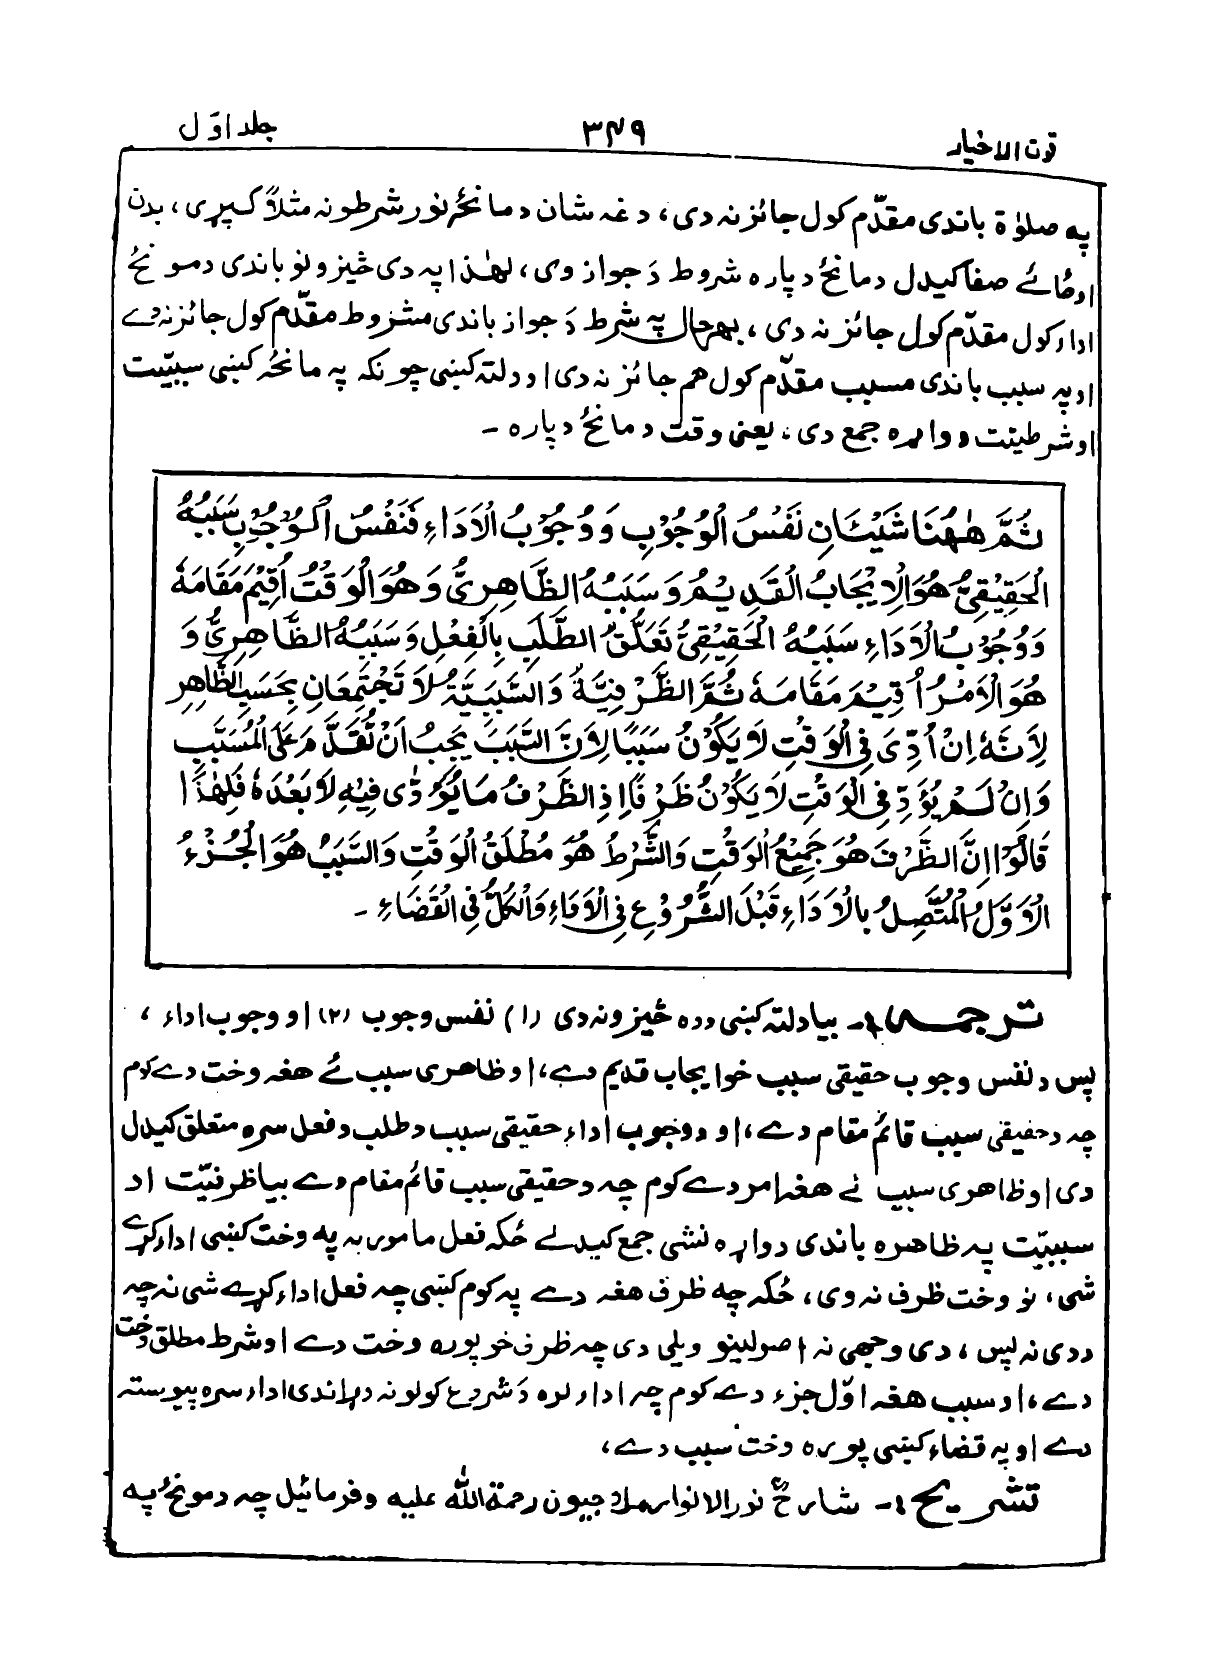 قوت الاخیار
۳۴۹
جلد اوّل
په صلوٰة باندی مقدّم کول جائز نه دی، دغه شان د مانځهٔ نور شرطونه مثلاً کپړی، بدن
او ځائے صفا کیدل د مانځهٔ دپاره شروط دَ جواز وی، لهٰذا په دی څیزونو باندی د مونځهٔ
اداء کول مقدّم کول جائز نه دی، بهرحال په شرط دَ جواز باندی مشروط مقدّم کول جائز نه دے
او په سبب باندی مسبب مقدّم کول هم جائز نه دی او دلته کښی چونکه په مانځه کښی سببیّت
او شرطیت دواړه جمع دی، یعنی وقت د مانځهٔ دپاره ـ
ثُمَّ هٰهُنَا شَيْئَانِ نَفْسُ الْوُجُوْبِ وَوُجُوْبُ الْاَدَاءِ فَنَفْسُ الْوُجُوْبِ سَبَبُهُ
الْحَقِيْقِيُّ هُوَ الْاِيْجَابُ الْقَدِيْمُ وَسَبَبُهُ الظَّاهِرِيُّ وَهُوَ الْوَقْتُ اُقِيْمَ مَقَامَهٗ
وَوُجُوْبُ الْاَدَاءِ سَبَبُهُ الْحَقِيْقِيُّ تَعَلُّقُ الطَّلَبِ بِالْفِعْلِ وَسَبَبُهُ الظَّاهِرِيُّ وَ
هُوَ الْاَمْرُ اُقِيْمَ مَقَامَهٗ ثُمَّ الظَّرْفِيَّةُ وَالسَّبَبِيَّةُ لَا تَجْتَمِعَانِ بِحَسَبِ الظَّاهِرِ
لِاَنَّهٗ اِنْ اُدِّيَ فِي الْوَقْتِ لَا يَكُوْنُ سَبَبًا لِاَنَّ السَّبَبَ يَجِبُ اَنْ تُقَدَّمَ عَلَى الْمُسَبَّبِ
وَاِنْ لَمْ يُؤَدِّ فِي الْوَقْتِ لَا يَكُوْنُ ظَرْفًا اِذِ الظَّرْفُ مَا يُؤَدّٰى فِيْهِ لَا بَعْدَهٗ فَلِهٰذَا
قَالُوْا اِنَّ الظَّرْفَ هُوَ جَمِيْعُ الْوَقْتِ وَالشَّرْطُ هُوَ مُطْلَقُ الْوَقْتِ وَالسَّبَبُ هُوَ الْجُزْءُ
الْاَوَّلُ الْمُتَّصِلُ بِالْاَدَاءِ قَبْلَ الشُّرُوْعِ فِي الْاَدَاءِ وَالْكُلُّ فِي الْقَضَاءِ ـ
ترجمه :ـ بیا دلته کښی دوه څیزونه دی (۱) نفس وجوب (۲) او وجوب اداء ،
پس د نفس وجوب حقیقی سبب خو ایجاب قدیم دے، او ظاهری سبب ئے هغه وخت دے کوم
چه د حقیقی سبب قائم مقام دے، او د وجوب اداء حقیقی سبب د طلب د فعل سره متعلق کیدل
دی او ظاهری سبب ئے هغه امر دے کوم چه د حقیقی سبب قائم مقام دے بیا ظرفیّت او
سببیّت په ظاهره باندی دواړه نشی جمع کیدلے ځکه فعل مامور به په وخت کښی اداء کړے
شی، نو وخت ظرف نه وی، ځکه چه ظرف هغه دے په کوم کښی چه فعل اداء کړے شی نه چه
ددی نه پس، دی وجهی نه اصولینو ویلی دی چه ظرف خو پوره وخت دے او شرط مطلق وخت
دے، او سبب هغه اوّل جزء دے کوم چه اداء لره دَ شروع کولو نه وړاندی اداء سره پیوسته
دے او په قضاء کښی پوره وخت سبب دے،
تشریح :ـ شارحؒ نور الانوار ملا جیون رحمة الله علیه وفرمائیل چه د مونځهٔ په